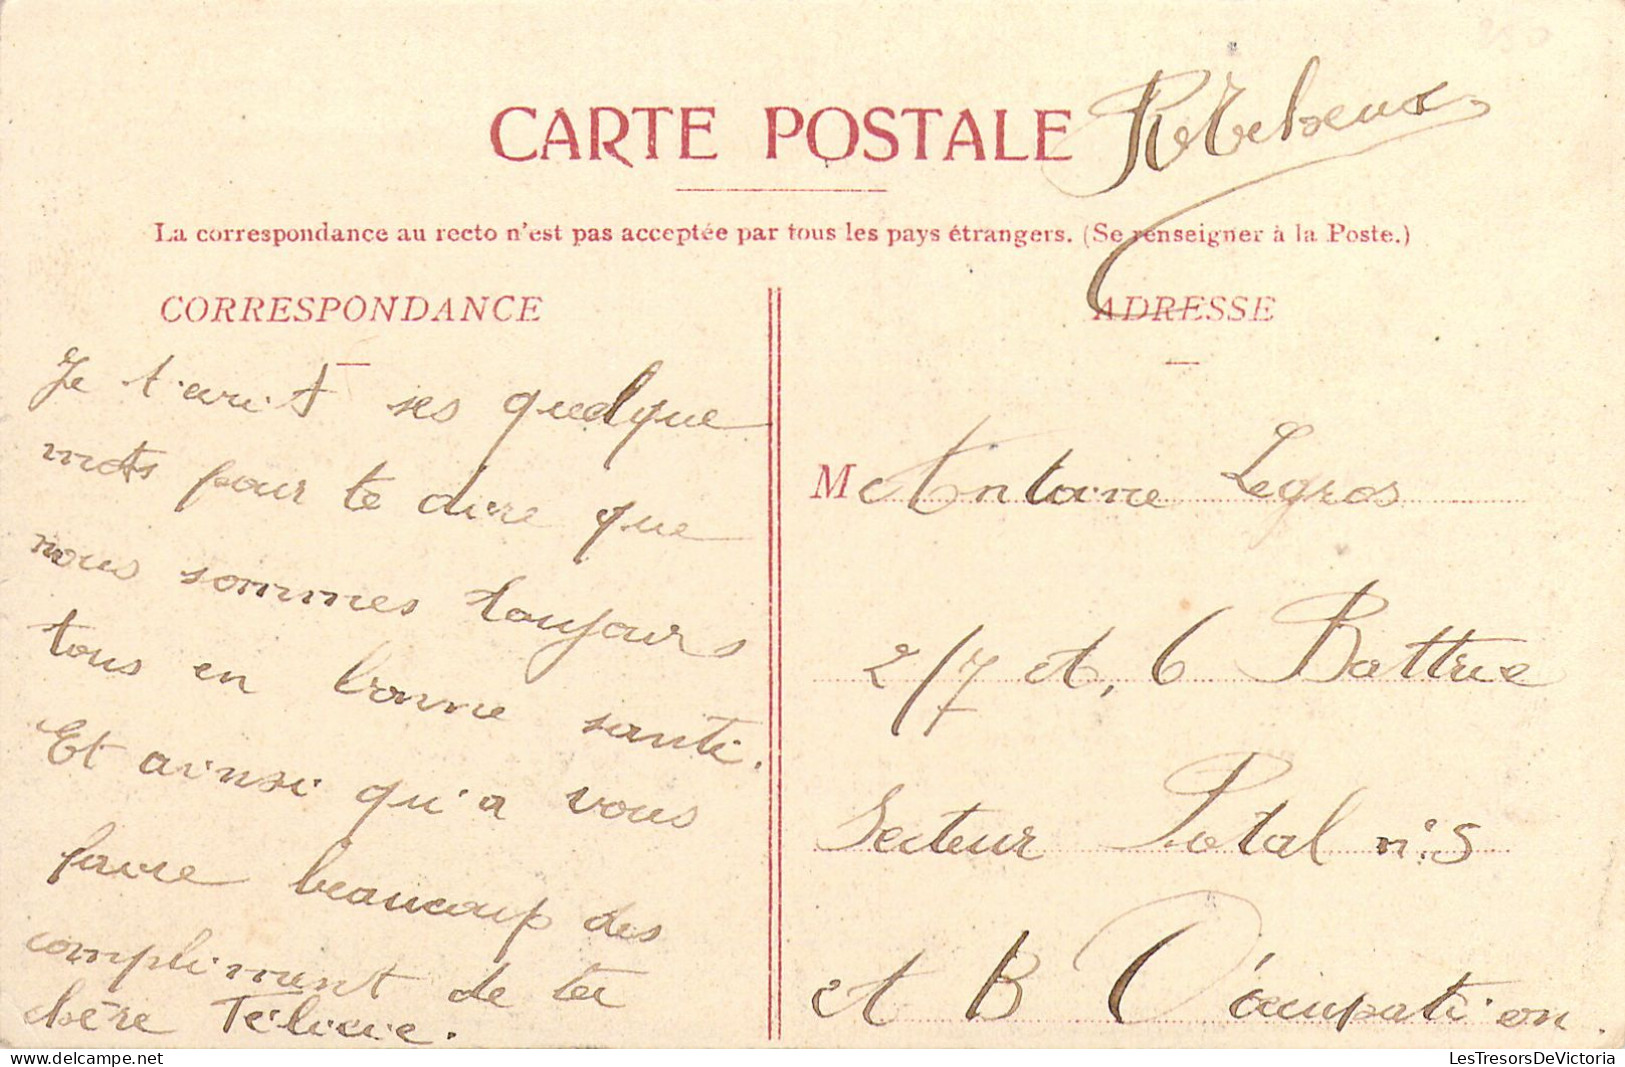 CARTE POSTALE
La correspondance au recto n'est pas acceptée par tous les pays étrangers. (Se renseigner à la Poste.)
CORRESPONDANCE
Je t'ecrit ses quelque
mots pour te dire que
nous sommes toujours
tous en bonne santé.
Et ainsi qu'a vous
faire beaucoup des
compliment de ta
chère Félicie.
ADRESSE
M Antoine Legros
2/7 et, 6 Battrie
Secteur Postal n: 5
et B D'ocupation.
LesTresorsDeVictoria